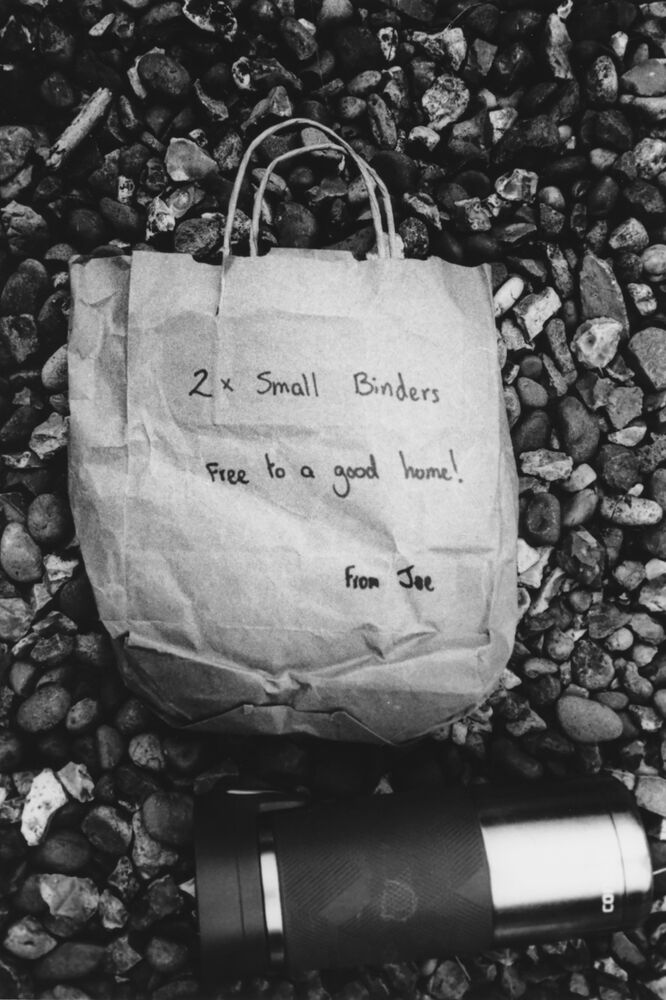 2 x Small Binders
Free to a good home!
From Joe